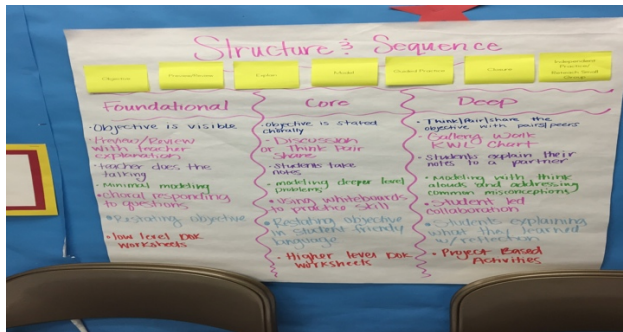 Structure & Sequence
Objective
Preview/Review
Explain
Model
Guided Practice
Closure
Independent
Practice/
Small
Group
Foundational
• Objective is visible
• Preview/Review
with teacher
explanation
• teacher does the
talking
• Minimal modeling
• Choral responding
to questions
• Restating objective
• low level DOK
worksheets
Core
• Objective is stated
chorally
• Discussion
or Think Pair
Share
• Students take
notes
• modeling deeper level
problems
• Using whiteboards
to practice skill
• Restating objective
in student friendly
language
• Higher level DOK
worksheets
Deep
• Think/Pair/share the
objective with pairs/peers
• Gallery Walk
KWL Chart
• Students explain their
notes to a partner
• Modeling with think
alouds and addressing
common misconceptions
• Student led
collaboration
• Students explaining
what they learned
w/reflection
• Project Based
Activities